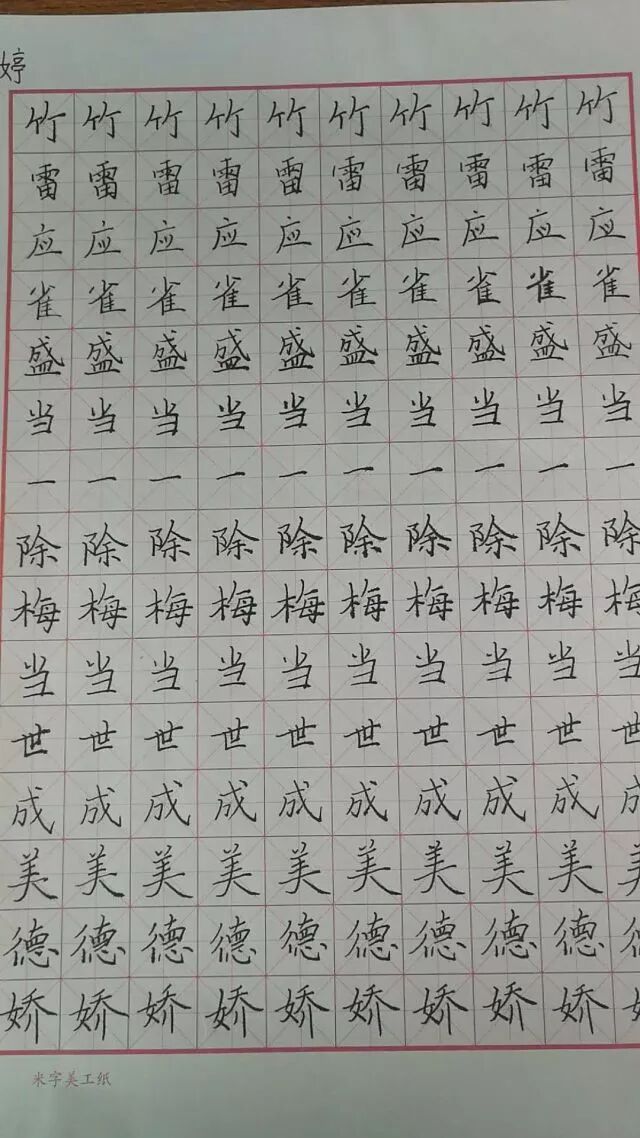 婷
竹竹竹竹竹竹竹竹竹竹
雷雷雷雷雷雷雷雷雷雷
应应应应应应应应应应
雀雀雀雀雀雀雀雀雀雀
盛盛盛盛盛盛盛盛盛盛
当当当当当当当当当当
一一一一一一一一一一
除除除除除除除除除除
梅梅梅梅梅梅梅梅梅梅
当当当当当当当当当当
世世世世世世世世世世
成成成成成成成成成成
美美美美美美美美美美
德德德德德德德德德德
娇娇娇娇娇娇娇娇娇娇
米字美工纸